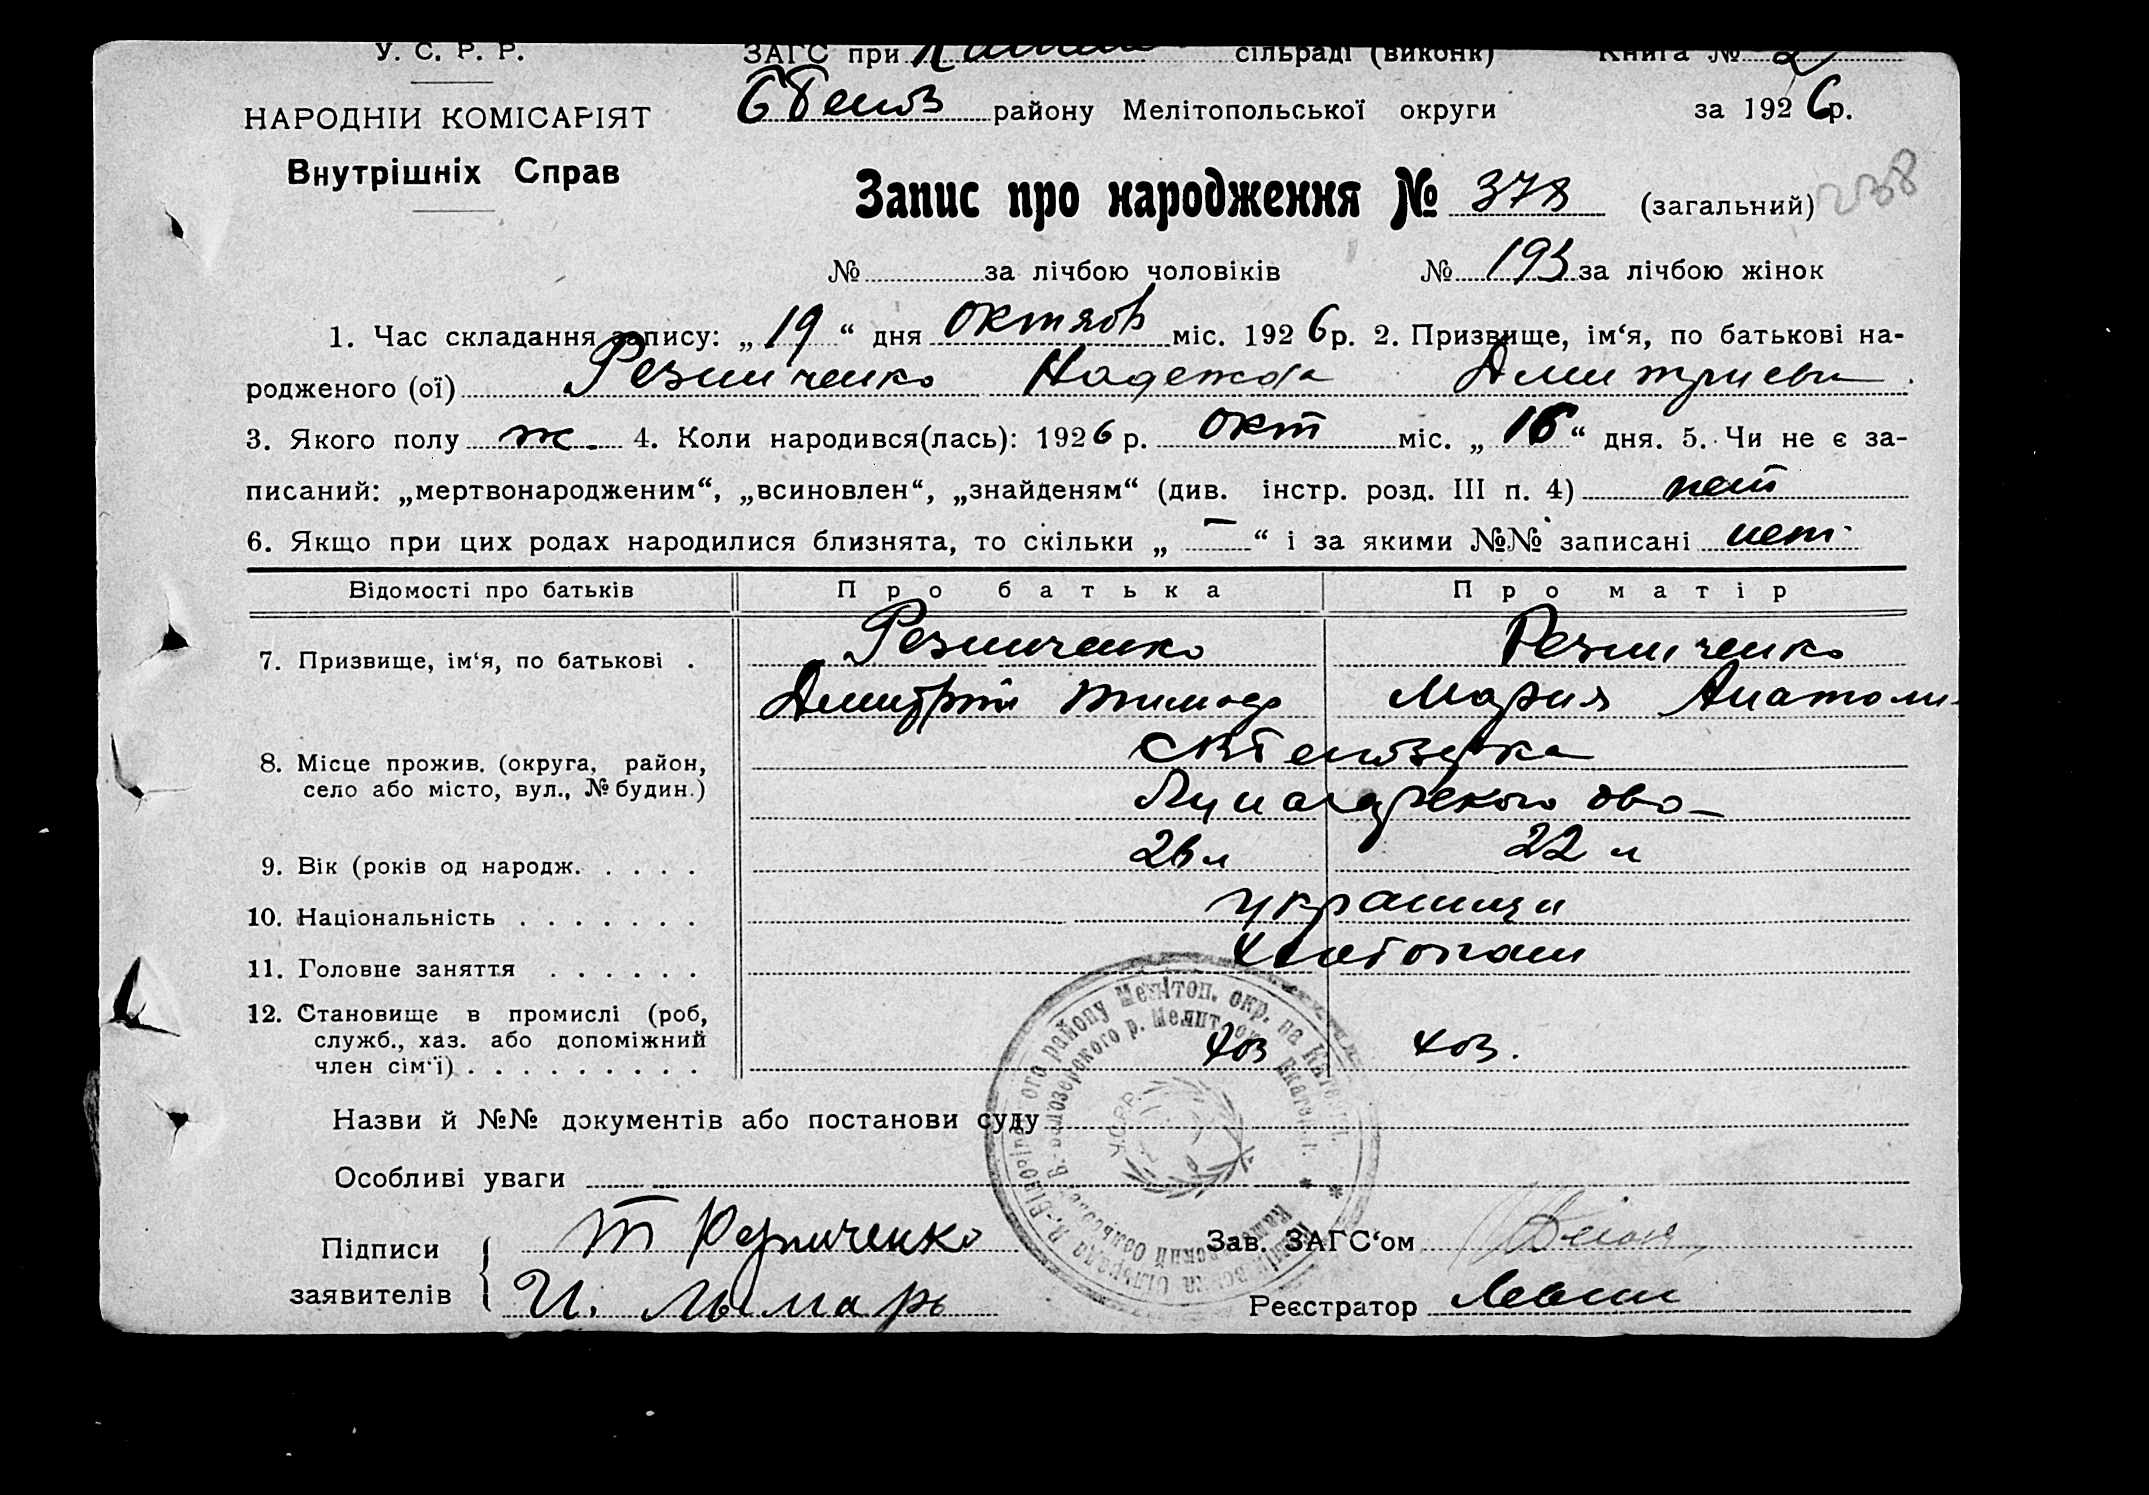 У. С. Р. Р. ЗАГС при сільраді (виконк) Книга № 2
району Мелітопольської округи за 1926р.
НАРОДНІЙ КОМІСАРІЯТ
Внутрішніх Справ
Запис про народження № 378 (загальний) 238
№ за лічбою чоловіків № 193 за лічбою жінок
1. Час складання запису: „19“ дня октяб міс. 1926р. 2. Призвище, ім‘я, по батькові на-
родженого (ої) Резниченко Надежда Дмитриевн
3. Якого полу ж. 4. Коли народився(лась): 1926 р. окт міс. „16“ дня. 5. Чи не є за-
писаний: „мертвонародженим“, „всиновлен“, „знайденям“ (див. інстр. розд. III п. 4) нет
6. Якщо при цих родах народилися близнята, то скільки „ — “ і за якими №№ записані нет
Відомості про батьків Про батька Про матір
7. Призвище, ім‘я, по батькові . Резниченко Резниченко
Дмитрий Тимоф Мария Анатоли
8. Місце прожив. (округа, район,
село або місто, вул., № будин.)
Луначарского
9. Вік (років од народж. . . . . 26 л 22 л
10. Національність . . . . . . . украинцы
11. Головне заняття . . . . . . хлебопаш
12. Становище в промислі (роб,
служб., хаз. або допоміжний хоз хоз.
член сім‘ї) . . . . . . . . .
Назви й №№ документів або постанови суду
Особливі уваги
У.С.Р.Р.
Підписи Т Резниченко Зав. ЗАГС‘ом
заявителів И. Лымарь Реєстратор